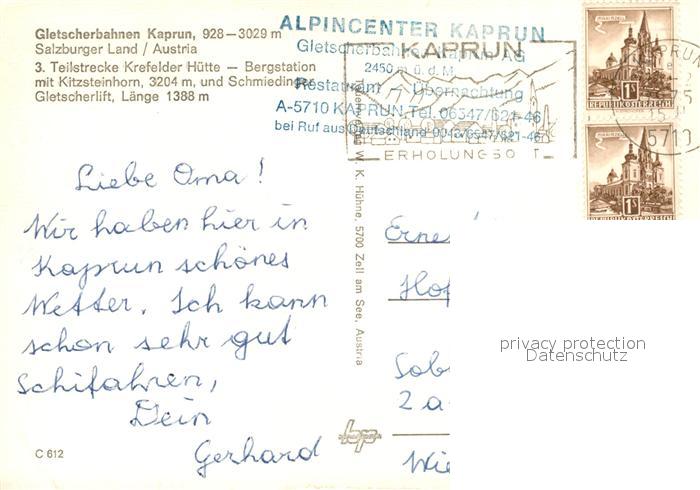 Gletscherbahnen Kaprun, 928–3029 m
Salzburger Land / Austria
3. Teilstrecke Krefelder Hütte – Bergstation
mit Kitzsteinhorn, 3204 m, und Schmiedinger
Gletscherlift, Länge 1388 m
ALPINCENTER KAPRUN
Gletscherbahnen Kaprun AG
2450 m ü. d. M.
Restaurant – Übernachtung
A-5710 KAPRUN Tel. 06547/621-46
bei Ruf aus Deutschland 0043/6547/621-46
KAPRUN
ERHOLUNGSO T
KAPRUN
75
15
5710
MARIAZELL
1S
REPUBLIK ÖSTERREICH
MARIAZELL
1S
REPUBLIK ÖSTERREICH
Liebe Oma!
Wir haben hier in
Kaprun schönes
Wetter. Ich kann
schon sehr gut
Schifahren,
Dein
Gerhard
C 612
W. K. Hühne, 5700 Zell am See, Austria
Erne
Hof
Sob
2 a
Wie
privacy protection
Datenschutz